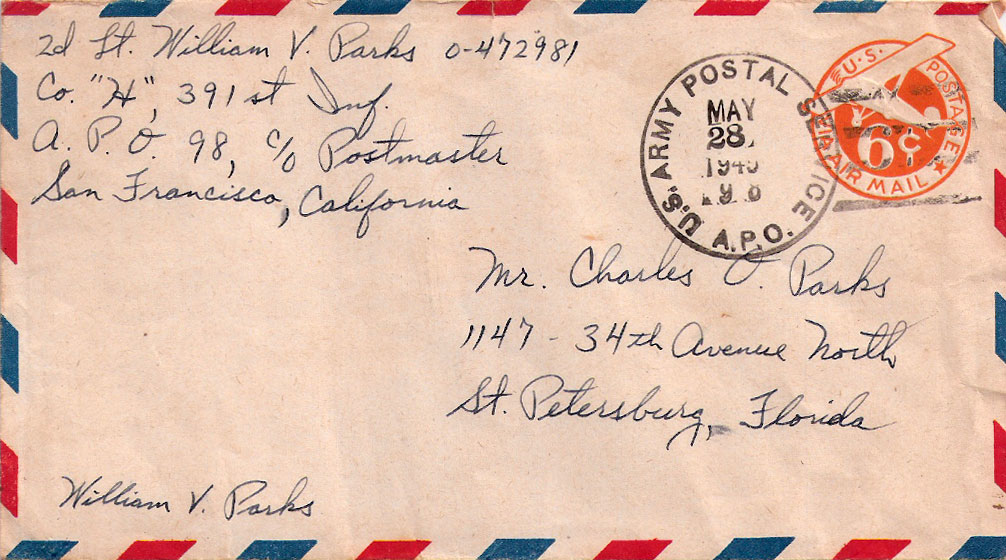 2d Lt. William V. Parks 0-472981
Co. "H", 391st Inf.
A. P. O. 98, c/o Postmaster
San Francisco, California
U.S. ARMY POSTAL SERVICE
MAY
28
A.P.O.
U.S. POSTAGE
6¢
AIR MAIL
Mr. Charles O. Parks
1147 - 34th Avenue North
St. Petersburg, Florida
William V. Parks